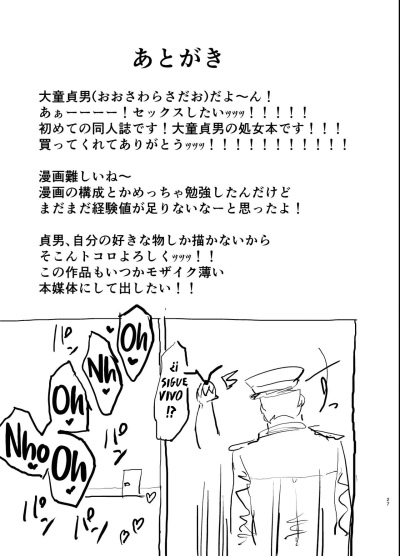 あとがき
大童貞男(おおさわらさだお)だよ〜ん！
あぁーーーー！セックスしたいｯｯｯ！！！！！
初めての同人誌です！大童貞男の処女本です！！！
買ってくれてありがとうｯｯｯ！！！！！！！！！！！
漫画難しいね〜
漫画の構成とかめっちゃ勉強したんだけど
まだまだ経験値が足りないなーと思ったよ！
貞男、自分の好きな物しか描かないから
そこんトコロよろしくｯｯｯ！！
この作品もいつかモザイク薄い
本媒体にして出したい！！
パン
パン
Oh
Nh
Oh
Nho
Oh
パン
パン
¿¡
SIGUE
VIVO
!?
27